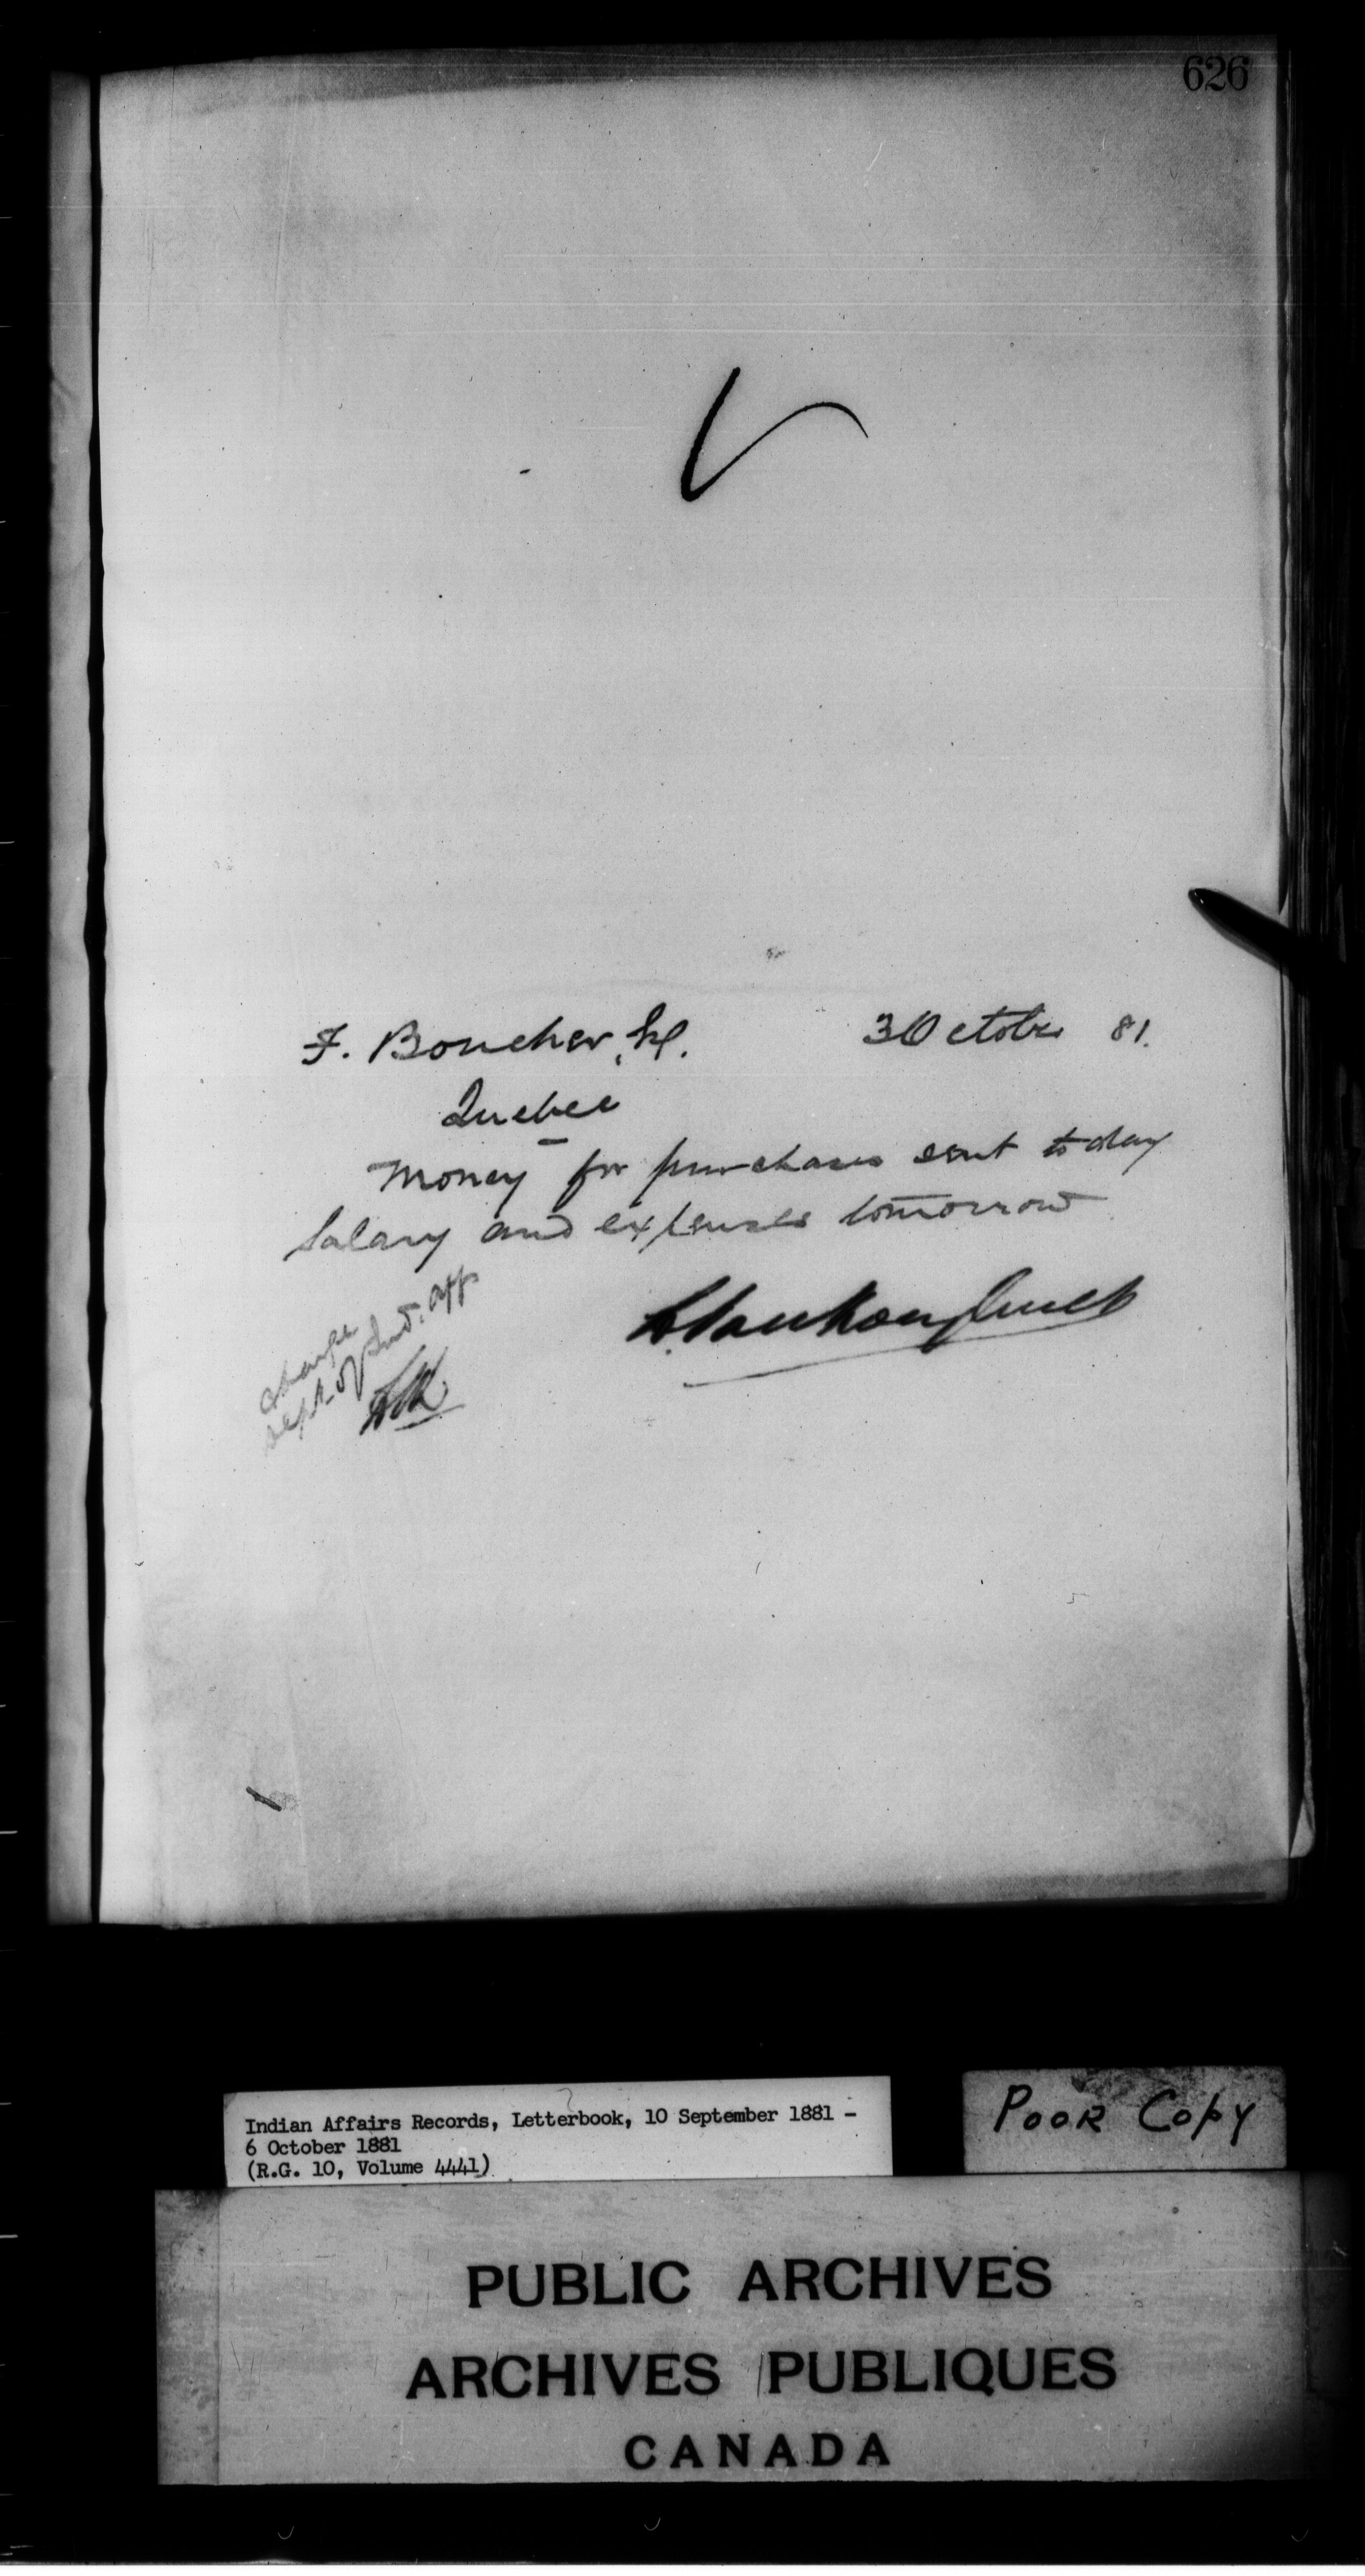 626
F. Boucher, Sr. 3 October 81.
Quebec
Money for purchases sent to day
Salary and expenses tomorrow
L Vankoughnet
Charge
Dept. of Ind. Aff.
LVK
Indian Affairs Records, Letterbook, 10 September 1881 -
6 October 1881
(R.G. 10, Volume 4441)
POOR COPY
PUBLIC ARCHIVES
ARCHIVES PUBLIQUES
CANADA